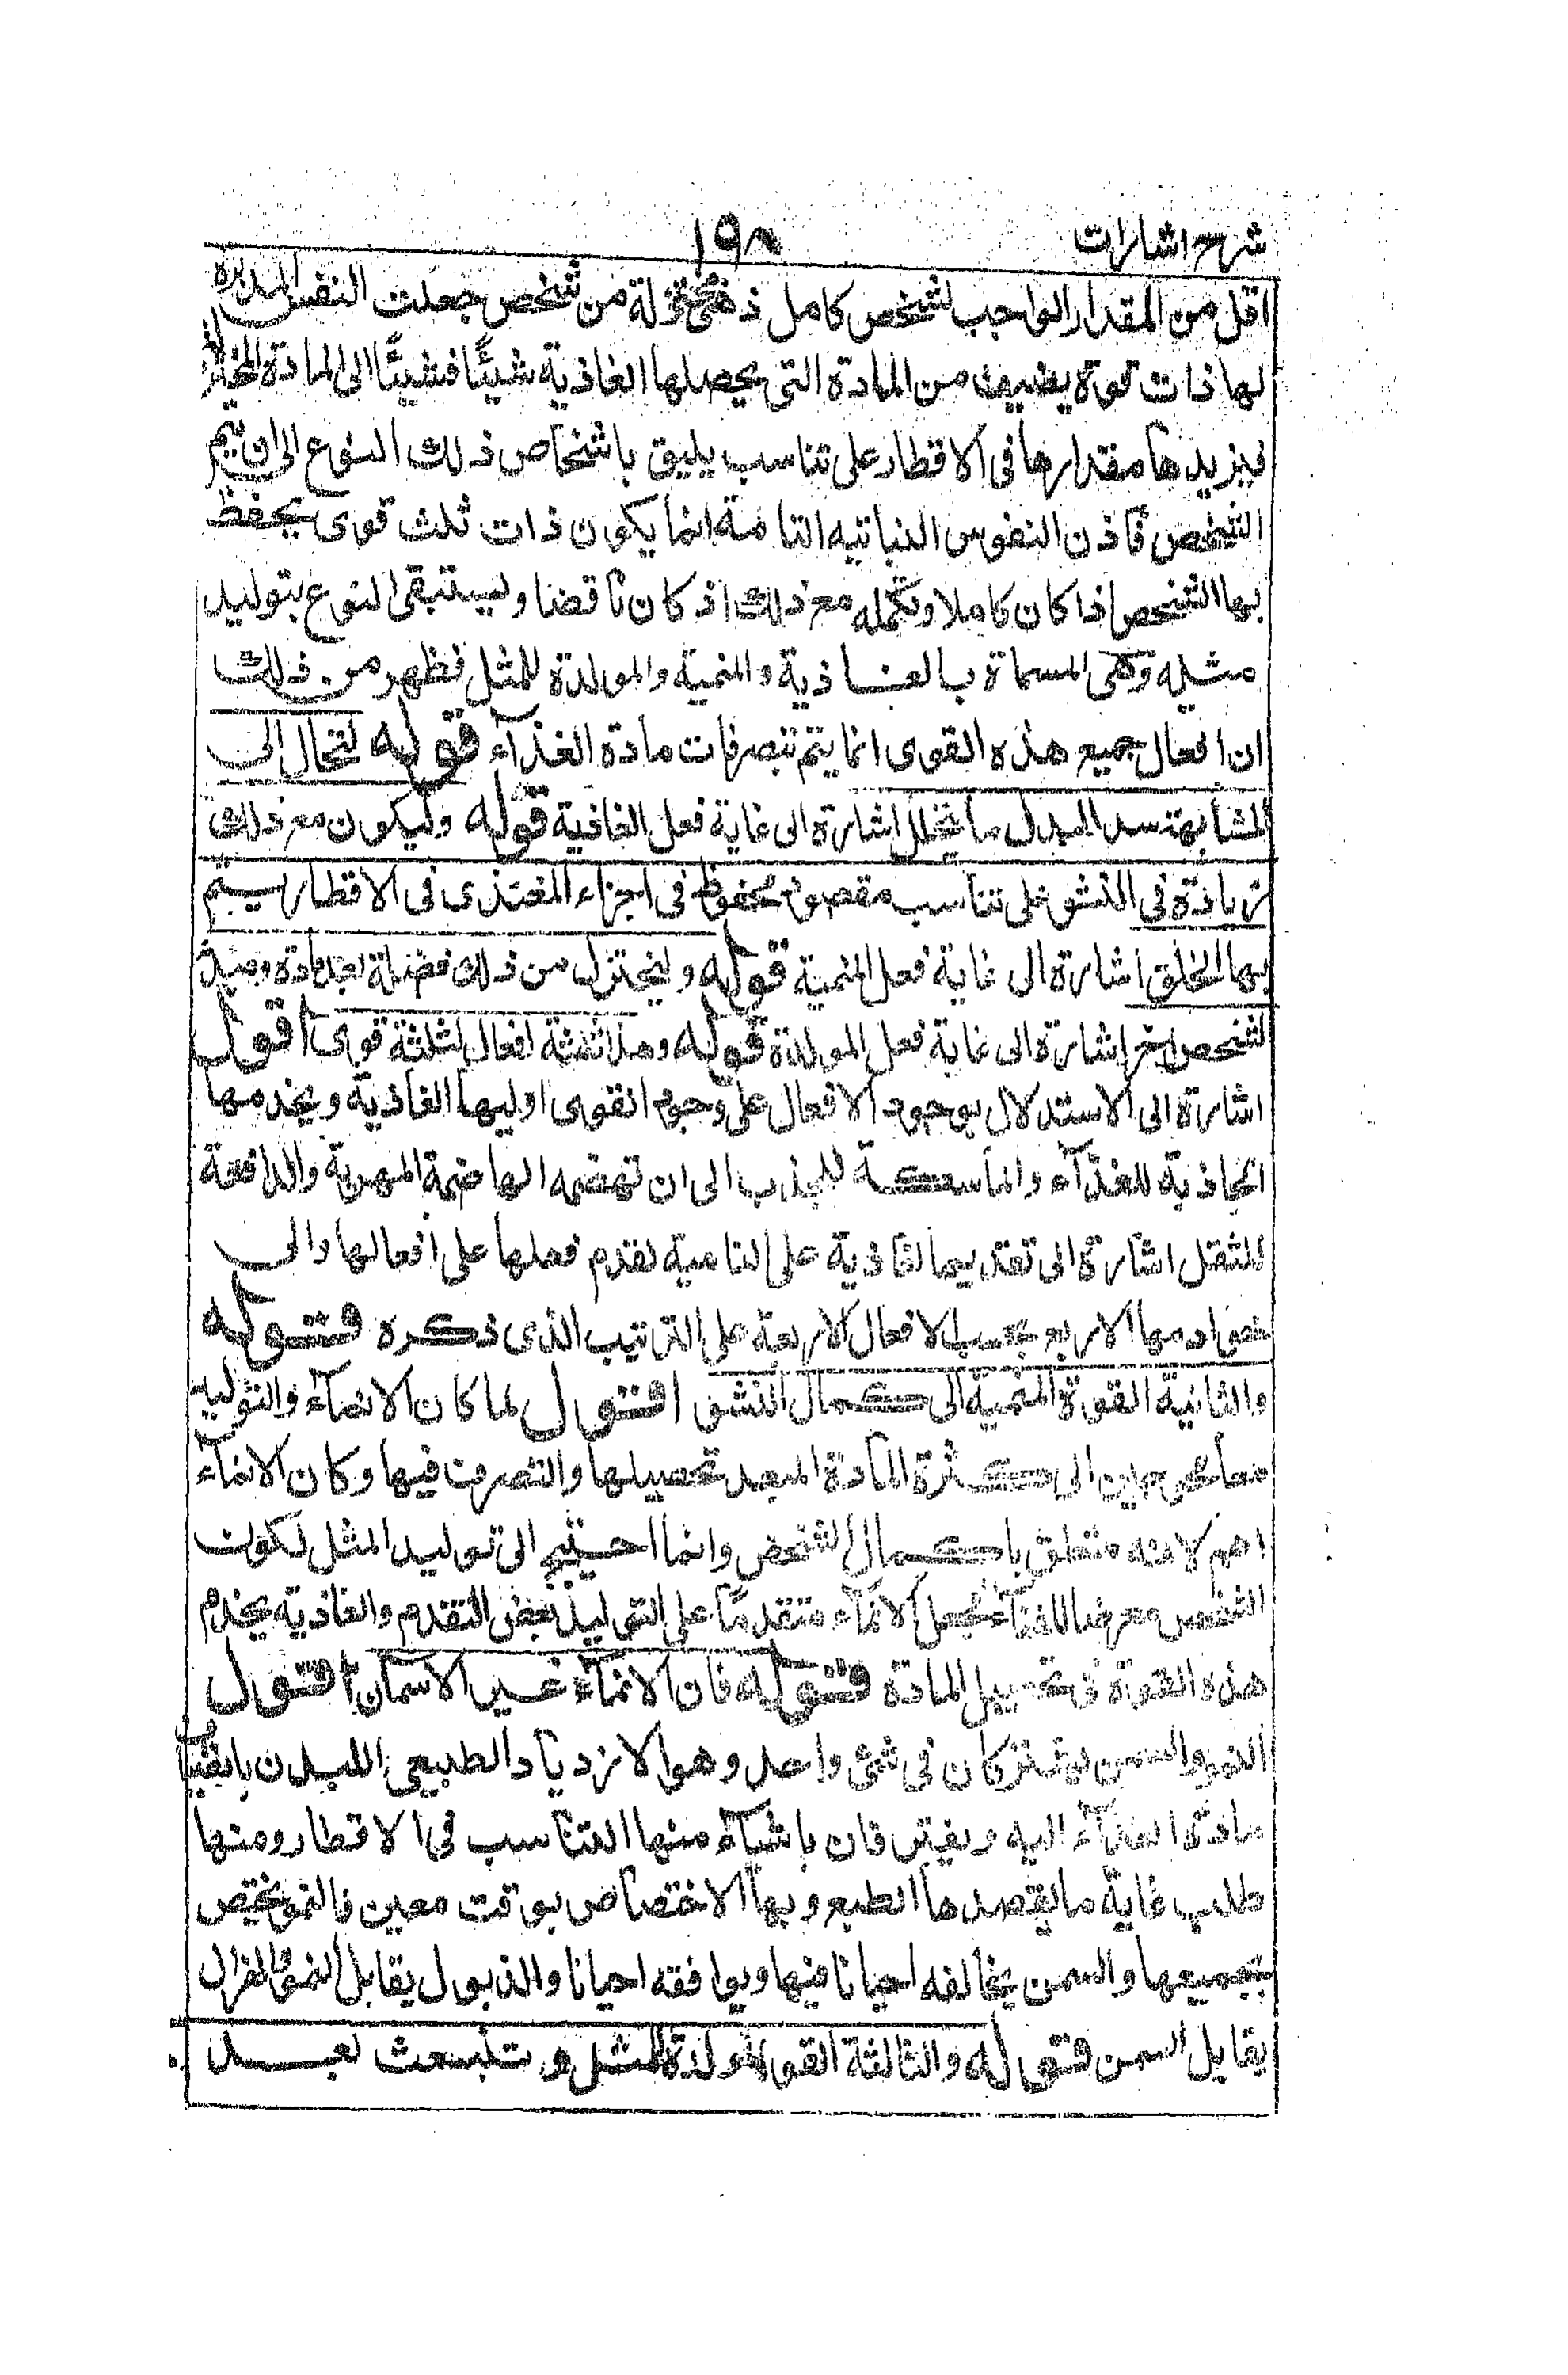 شرح اشارات
١٩٨
اقل من المقدار الواجب لشخص كامل اذ هى مختزلة من شخص جعلت النفس المدبرة
لها ذات قوة يضيف من المادة التى يحصلها الغاذية شيئًا فشيئًا الى المادة
فيزيد ها مقدارها فى الاقطار على تناسب يليق باشخاص ذلك النوع الى ان يتم
الشخص فاذن النفوس النباتيه التامة انما يكون ذات ثلث قوى يحفظ
بها الشخص اذا كان كاملا وتكمله مع ذلك اذ كان ناقصا ويستبقى النوع بتوليد
مثيله وهى المسماة بالغاذية والمنمية والمولدة للمثل فظهر من ذلك
ان افعال جميع هذه القوى انما يتم بتصرفات مادة الغذآء قوله لتحال الى
المشابهة سد البدل ما يتحلل اشارة الى غاية فعل الغاذية قوله وليكون مع ذلك
زيادة فى النشو على تناسب مقصود محفوظ فى اجزاء المغتذى فى الاقطار يتم
بها الخلق اشارة الى غاية فعل المنمية قوله وليختزل من ذلك فضلة يعد مادة ومبدأ
لشخص اخر اشارة الى غاية فعل المولدة قوله وهذا ثلثة افعال لثلثة قوى اقول
اشارة الى الاستدلال بوجود الافعال على وجود القوى اوليها الغاذية ويخدمها
الجاذبة للغذآء والماسكة للجذب الى ان تهضمه الهاضمة المهرية والدافعة
للثقل اشارة الى تقديم الغاذية على النامية لقدم فعلها على افعالها والى
خوادمها الاربع بحسب الافعال الاربعة على الترتيب الذى ذكره قوله
والثانية القوة المنمية الى كمال النشو اقول لما كان الانمآء والتوليد
معا محوجين الى كثرة المادة المبعد تحصيلها والتصرف فيها وكان الانمآء
اهم لانه متعلق باكمال الشخص وانما احتيج الى توليد المثل لكون
الشخص معرضا للفنآء فجعل الانمآء متقدمًا على التوليد بعض التقدم والغاذية يخدم
هذه القوة فى تحصيل المادة قوله فان الانمآء غير الاسمان اقول
النمو والسمن يشتركان فى شئ واحد وهو الازدياد الطبيعى للبدن
مادة الغذآء اليه ويفترقان باشيآء منها التناسب فى الاقطار ومنها
طلب غاية ما يقصدها الطبع وبها الاختصاص بوقت معين فالنمو يختص
بجميعها والسمن يخالفه احيانا فيها ويوافقه احيانا والذبول يقابل النمو والهزال
يقابل السمن قوله والثالثة القوة المولدة للمثل وتنبعث بعد